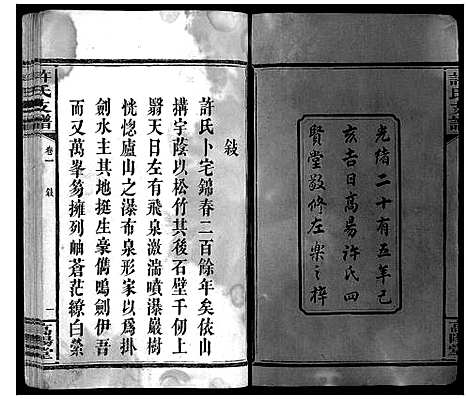 許氏支譜
光緒二十有五年己
亥吉日高易許氏四
賢堂敬修左樂之梓
敘
許氏卜宅錦春二百餘年矣依山
搆宇蔭以松竹其後石壁千仞上
翳天日左有飛泉激湍噴瀑巖樹
恍惚廬山之瀑布泉形家以為掛
劍水主其地挺生豪儁鳴劍伊吾
而又萬峯筩擁列岫蒼茫繚白縈
許氏支譜
卷一
敘
一
高陽堂